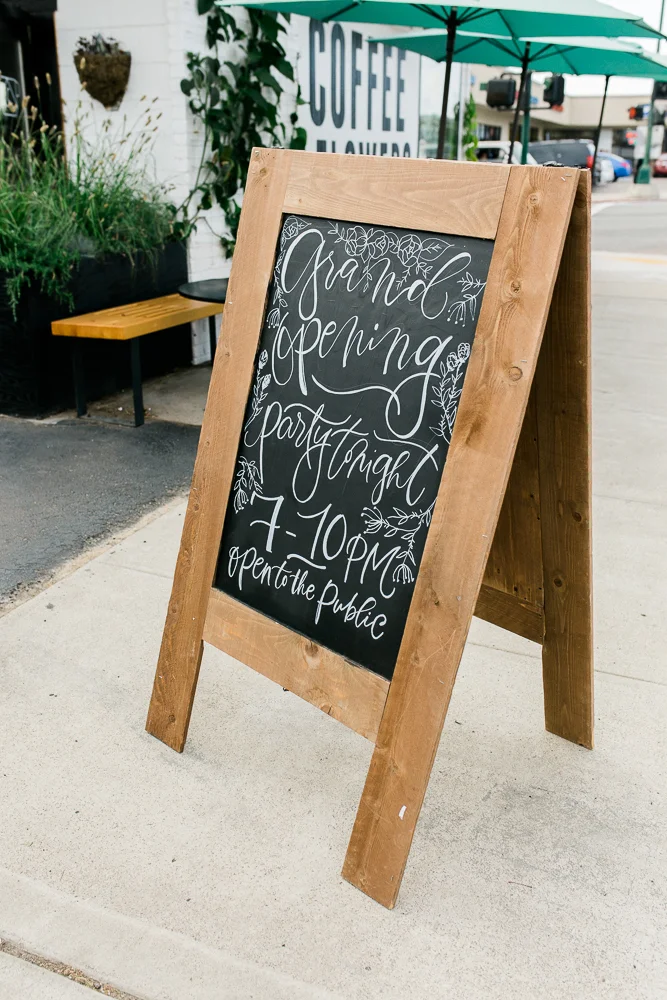 COFFEE
FLOWERS
Grand
opening
party tonight
7-10PM
open to the public